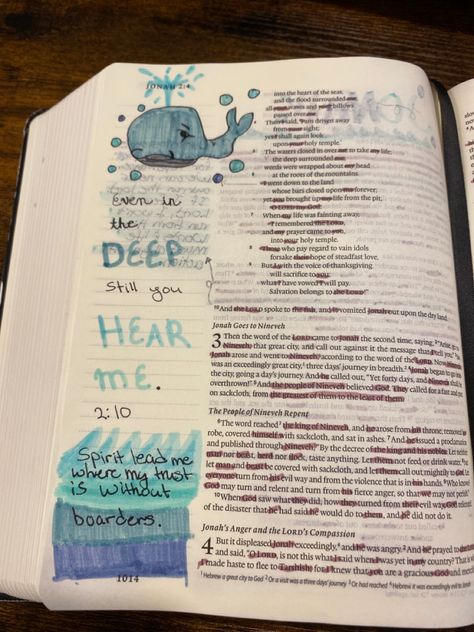 JONAH 2:4
even in
the
DEEP
Still you
HEAR
ME.
2:10
Spirit lead me
where my trust
is without
boarders!
1014
into the heart of the seas,
and the flood surrounded me;
all your waves and your billows
passed over me.
4 Then I said, 'I am driven away
from your sight;
yet I shall again look
upon your holy temple.'
5 The waters closed in over me to take my life;
the deep surrounded me;
weeds were wrapped about my head
6 at the roots of the mountains.
I went down to the land
whose bars closed upon me forever;
yet you brought up my life from the pit,
O LORD my God.
7 When my life was fainting away,
I remembered the LORD,
and my prayer came to you,
into your holy temple.
8 Those who pay regard to vain idols
forsake their hope of steadfast love.
9 But I with the voice of thanksgiving
will sacrifice to you;
what I have vowed I will pay.
Salvation belongs to the LORD!"
10 And the LORD spoke to the fish, and it vomited Jonah out upon the dry land.
Jonah Goes to Nineveh
3 Then the word of the LORD came to Jonah the second time, saying, 2 "Arise, go to
Nineveh, that great city, and call out against it the message that I tell you." 3 So
Jonah arose and went to Nineveh, according to the word of the LORD. Now Nineveh
was an exceedingly great city, three days' journey in breadth. 4 Jonah began to go into
the city, going a day's journey. And he called out, "Yet forty days, and Nineveh shall be
overthrown!" 5 And the people of Nineveh believed God. They called for a fast and put
on sackcloth, from the greatest of them to the least of them.
The People of Nineveh Repent
6 The word reached the king of Nineveh, and he arose from his throne, removed his
robe, covered himself with sackcloth, and sat in ashes. 7 And he issued a proclamation
and published through Nineveh, "By the decree of the king and his nobles: Let neither
man nor beast, herd nor flock, taste anything. Let them not feed or drink water, 8 but
let man and beast be covered with sackcloth, and let them call out mightily to God. Let
everyone turn from his evil way and from the violence that is in his hands. 9 Who knows?
God may turn and relent and turn from his fierce anger, so that we may not perish."
10 When God saw what they did, how they turned from their evil way, God relented
of the disaster that he had said he would do to them, and he did not do it.
Jonah's Anger and the LORD's Compassion
4 But it displeased Jonah exceedingly, and he was angry. 2 And he prayed to the LORD
and said, "O LORD, is not this what I said when I was yet in my country? That is why
I made haste to flee to Tarshish; for I knew that you are a gracious God and merciful,
1 Hebrew a great city to God 2 Or a visit was a three days' journey 3 Or had reached 4 Hebrew it was exceedingly evil to Jonah